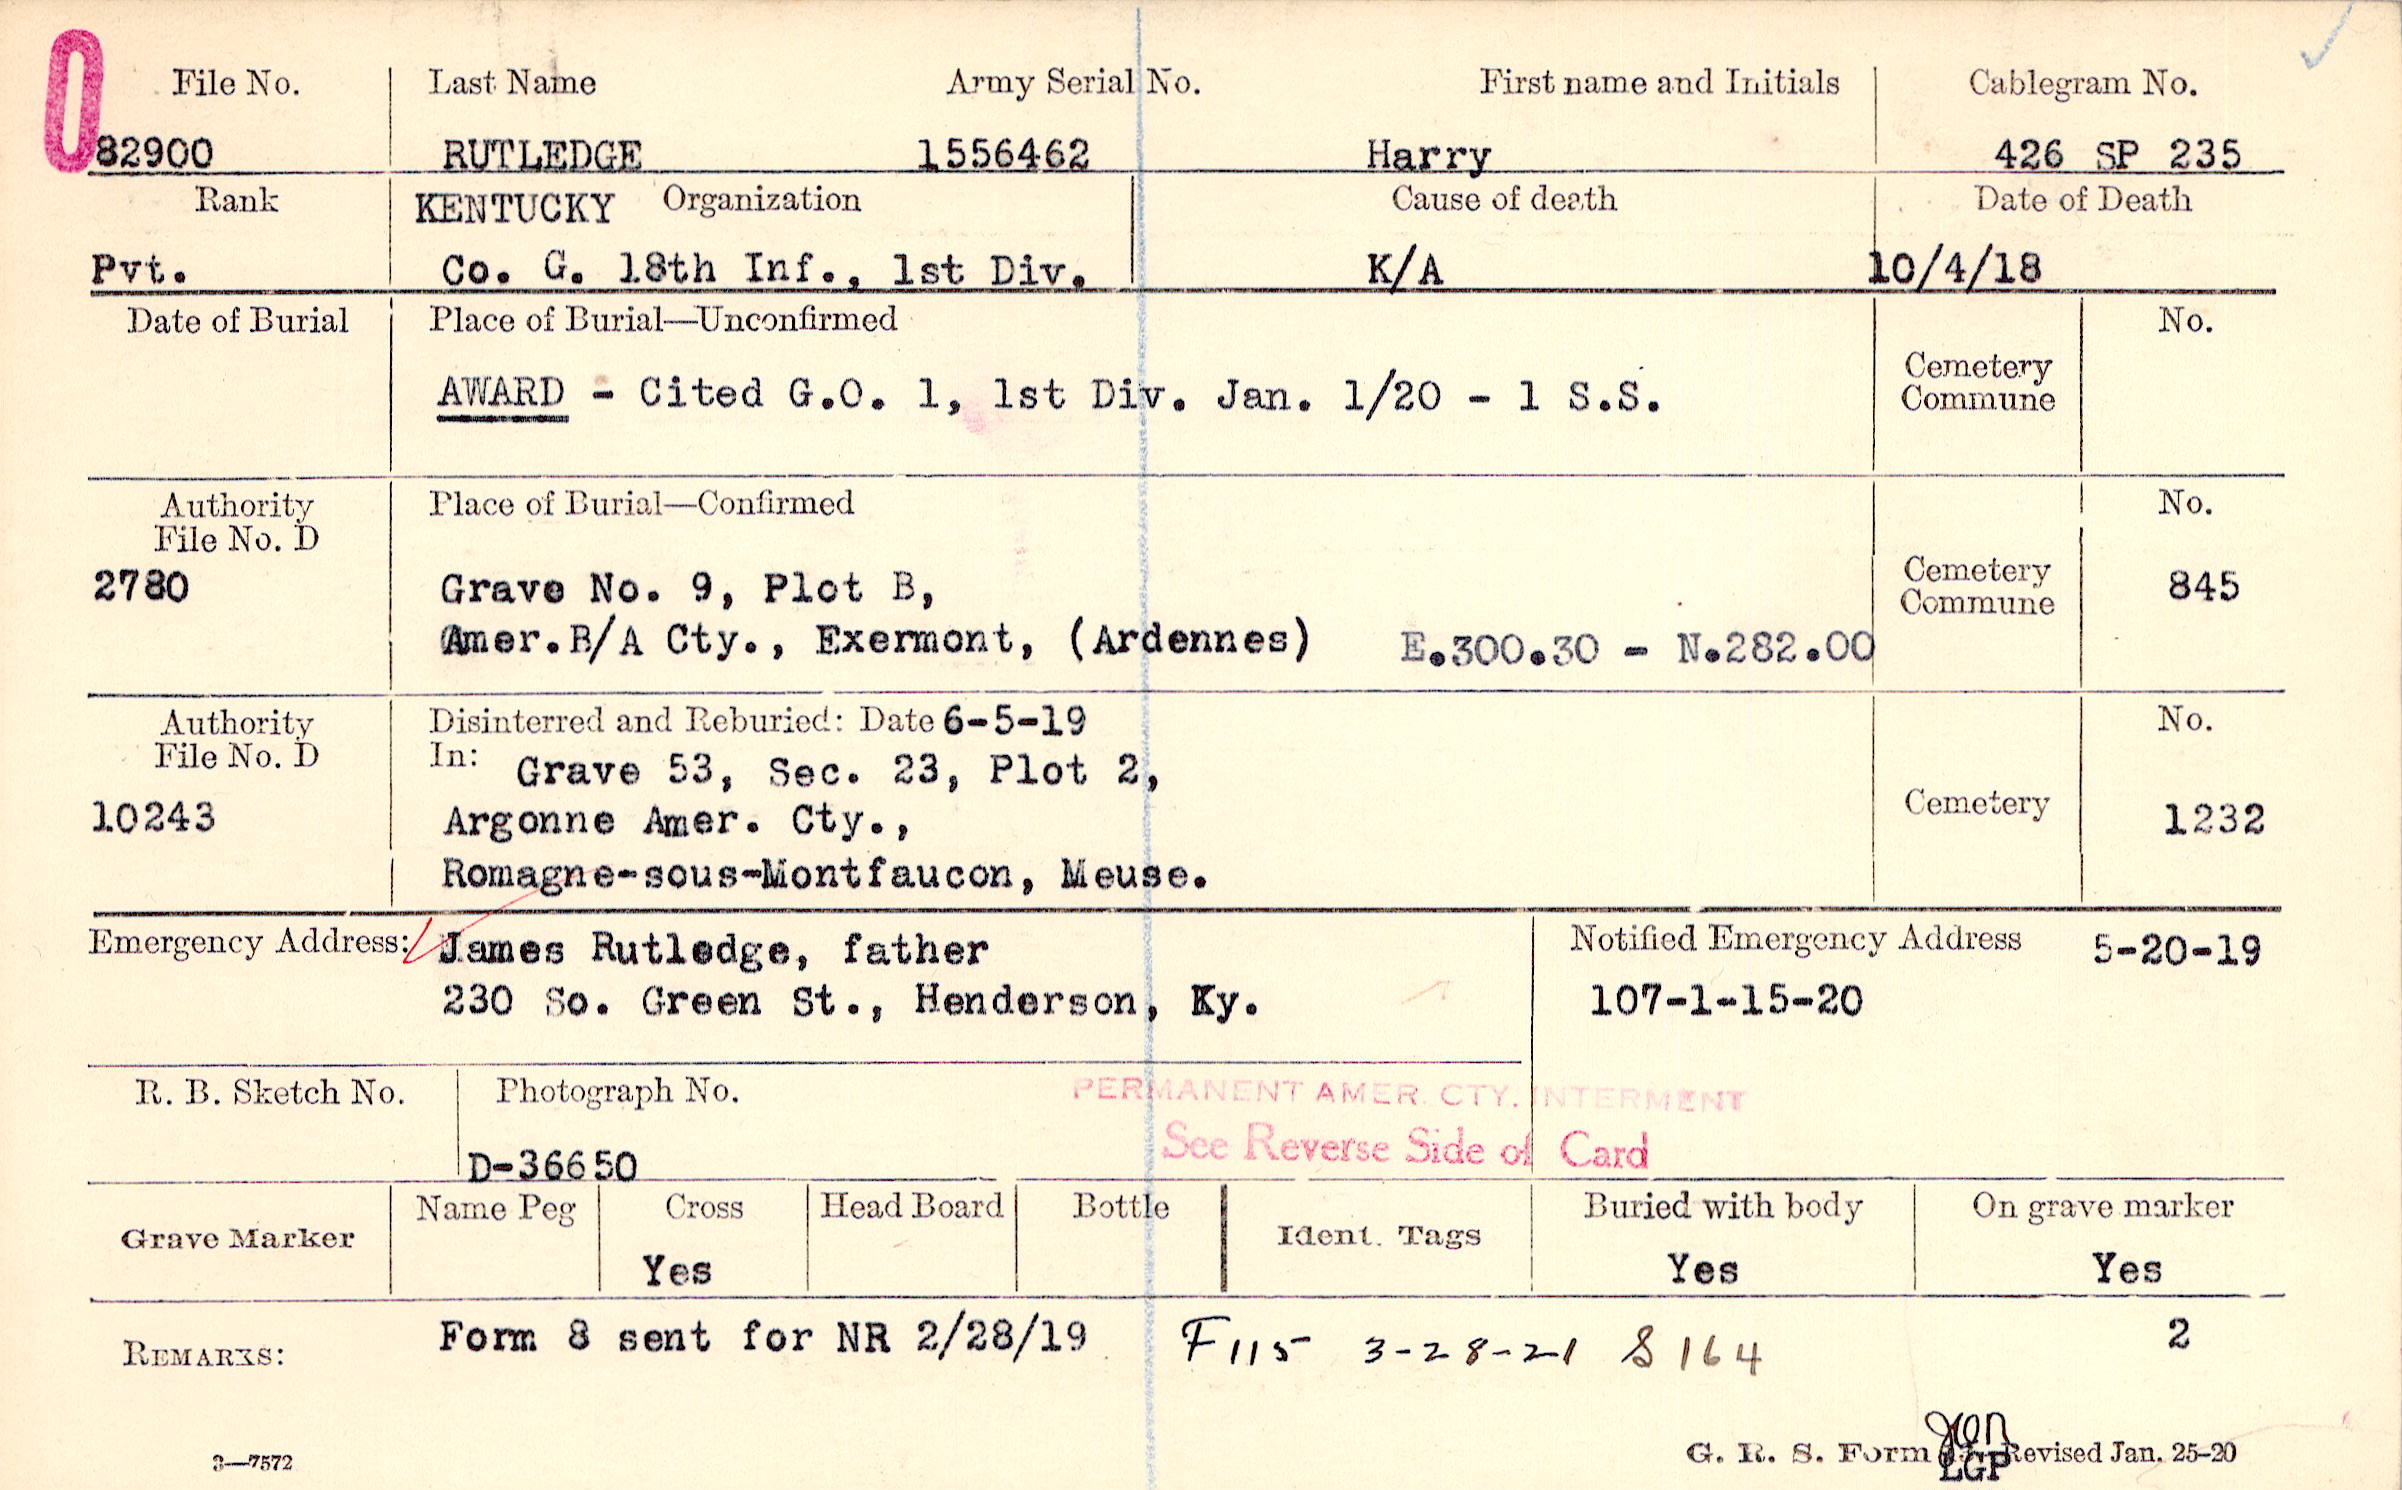 O
File No. Last Name Army Serial No. First name and Initials Cablegram No.
82900 RUTLEDGE 1556462 Harry 426 SP 235
Rank KENTUCKY Organization Cause of death Date of Death
Pvt. Co. G. 18th Inf., 1st Div. K/A 10/4/18
Date of Burial Place of Burial—Unconfirmed No.
Cemetery
Commune
AWARD - Cited G.O. 1, 1st Div. Jan. 1/20 - 1 S.S.
Authority Place of Burial—Confirmed No.
File No. D
2780 Grave No. 9, Plot B, Cemetery 845
Commune
Amer.B/A Cty., Exermont, (Ardennes) E.300.30 - N.282.00
Authority Disinterred and Reburied: Date 6-5-19 No.
File No. D In: Grave 53, Sec. 23, Plot 2,
10243 Argonne Amer. Cty., Cemetery 1232
Romagne-sous-Montfaucon, Meuse.
Emergency Address: James Rutledge, father Notified Emergency Address 5-20-19
230 So. Green St., Henderson, Ky. 107-1-15-20
R. B. Sketch No. Photograph No. PERMANENT AMER. CTY. INTERMENT
See Reverse Side of Card
D-36650
Name Peg Cross Head Board Bottle Buried with body On grave marker
Grave Marker Ident. Tags
Yes Yes Yes
REMARKS: Form 8 sent for NR 2/28/19 F115 3-28-21 S 164 2
3—7572 G. R. S. Form Revised Jan. 25-20
LGP